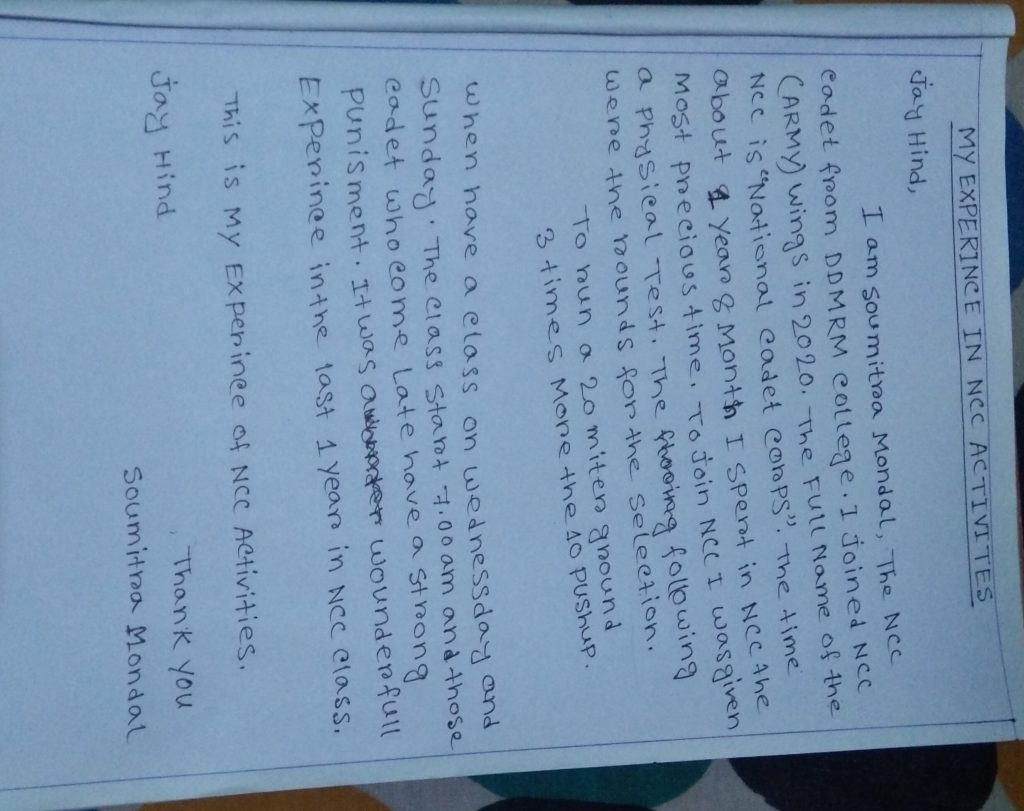 MY EXPERINCE IN NCC ACTIVITES
Jay Hind,
I am Soumitra Mondal, The NCC
cadet from DDMRM college. I Joined NCC
(ARMY) wings in 2020. The Full Name of the
NCC is "National cadet corps". The time
about 1 year 8 Month I spent in NCC the
Most precious time. To Join NCC I was given
a physical Test. The following
were the rounds for the selection.
To run a 20 miter ground
3 times More the 10 pushup.
when have a class on wednessday and
Sunday. The class start 7.00 am and those
cadet who come Late have a strong
punisment. It was wounderfull
Experince in the last 1 year in NCC class.
This is My Experince of NCC Activities.
Jay Hind
Thank you
Soumitra Mondal